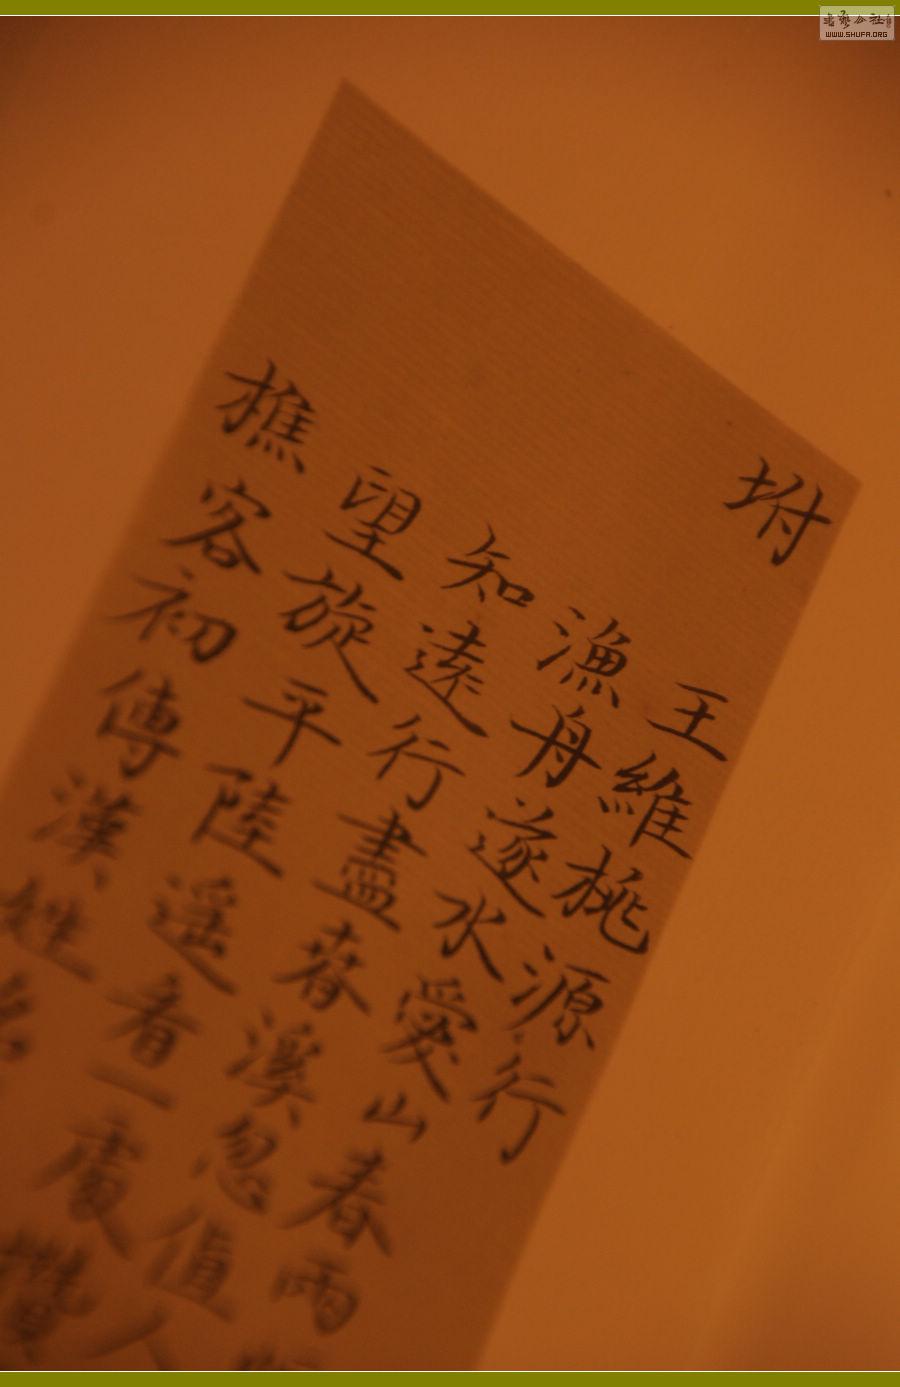 坿
王維桃源行
漁舟遂水愛山春兩
知遠行盡春溪忽值人
望旋平陸遥看一處攢
樵客初傳漢姓名
書藝公社
WWW.SHUFA.ORG